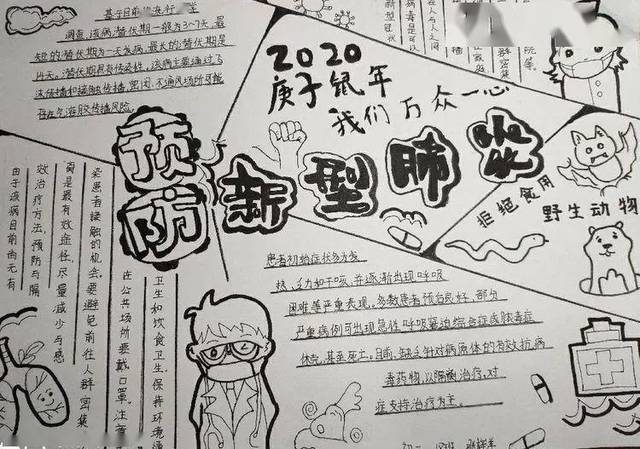 2020
庚子鼠年
我们万众一心
预防新型肺炎
基于目前流行
调查,该病潜伏期一般为3~7天,最
短的潜伏期为一天发病,最长的潜伏期是
人与人之间
病毒是可以
院等
群密集
拒绝食用
野生动物
患者初始症状多为发
热、乏力和干咳,并逐渐出现呼吸
困难等严重表现。多数患者预后良好,部分
严重病例可出现急性呼吸窘迫综合症或脓毒症
休克,甚至死亡。目前,缺乏针对病原体的有效抗病
毒药物,以隔离治疗,对
症支持治疗为主。
卫生和饮食卫生,保持环境
在公共场所要戴口罩。注意
染患者接触的机会。要避免前往人群密集
离是最有效途径,尽量减少与感
效治疗方法,预防与隔
由于该病目前尚无有